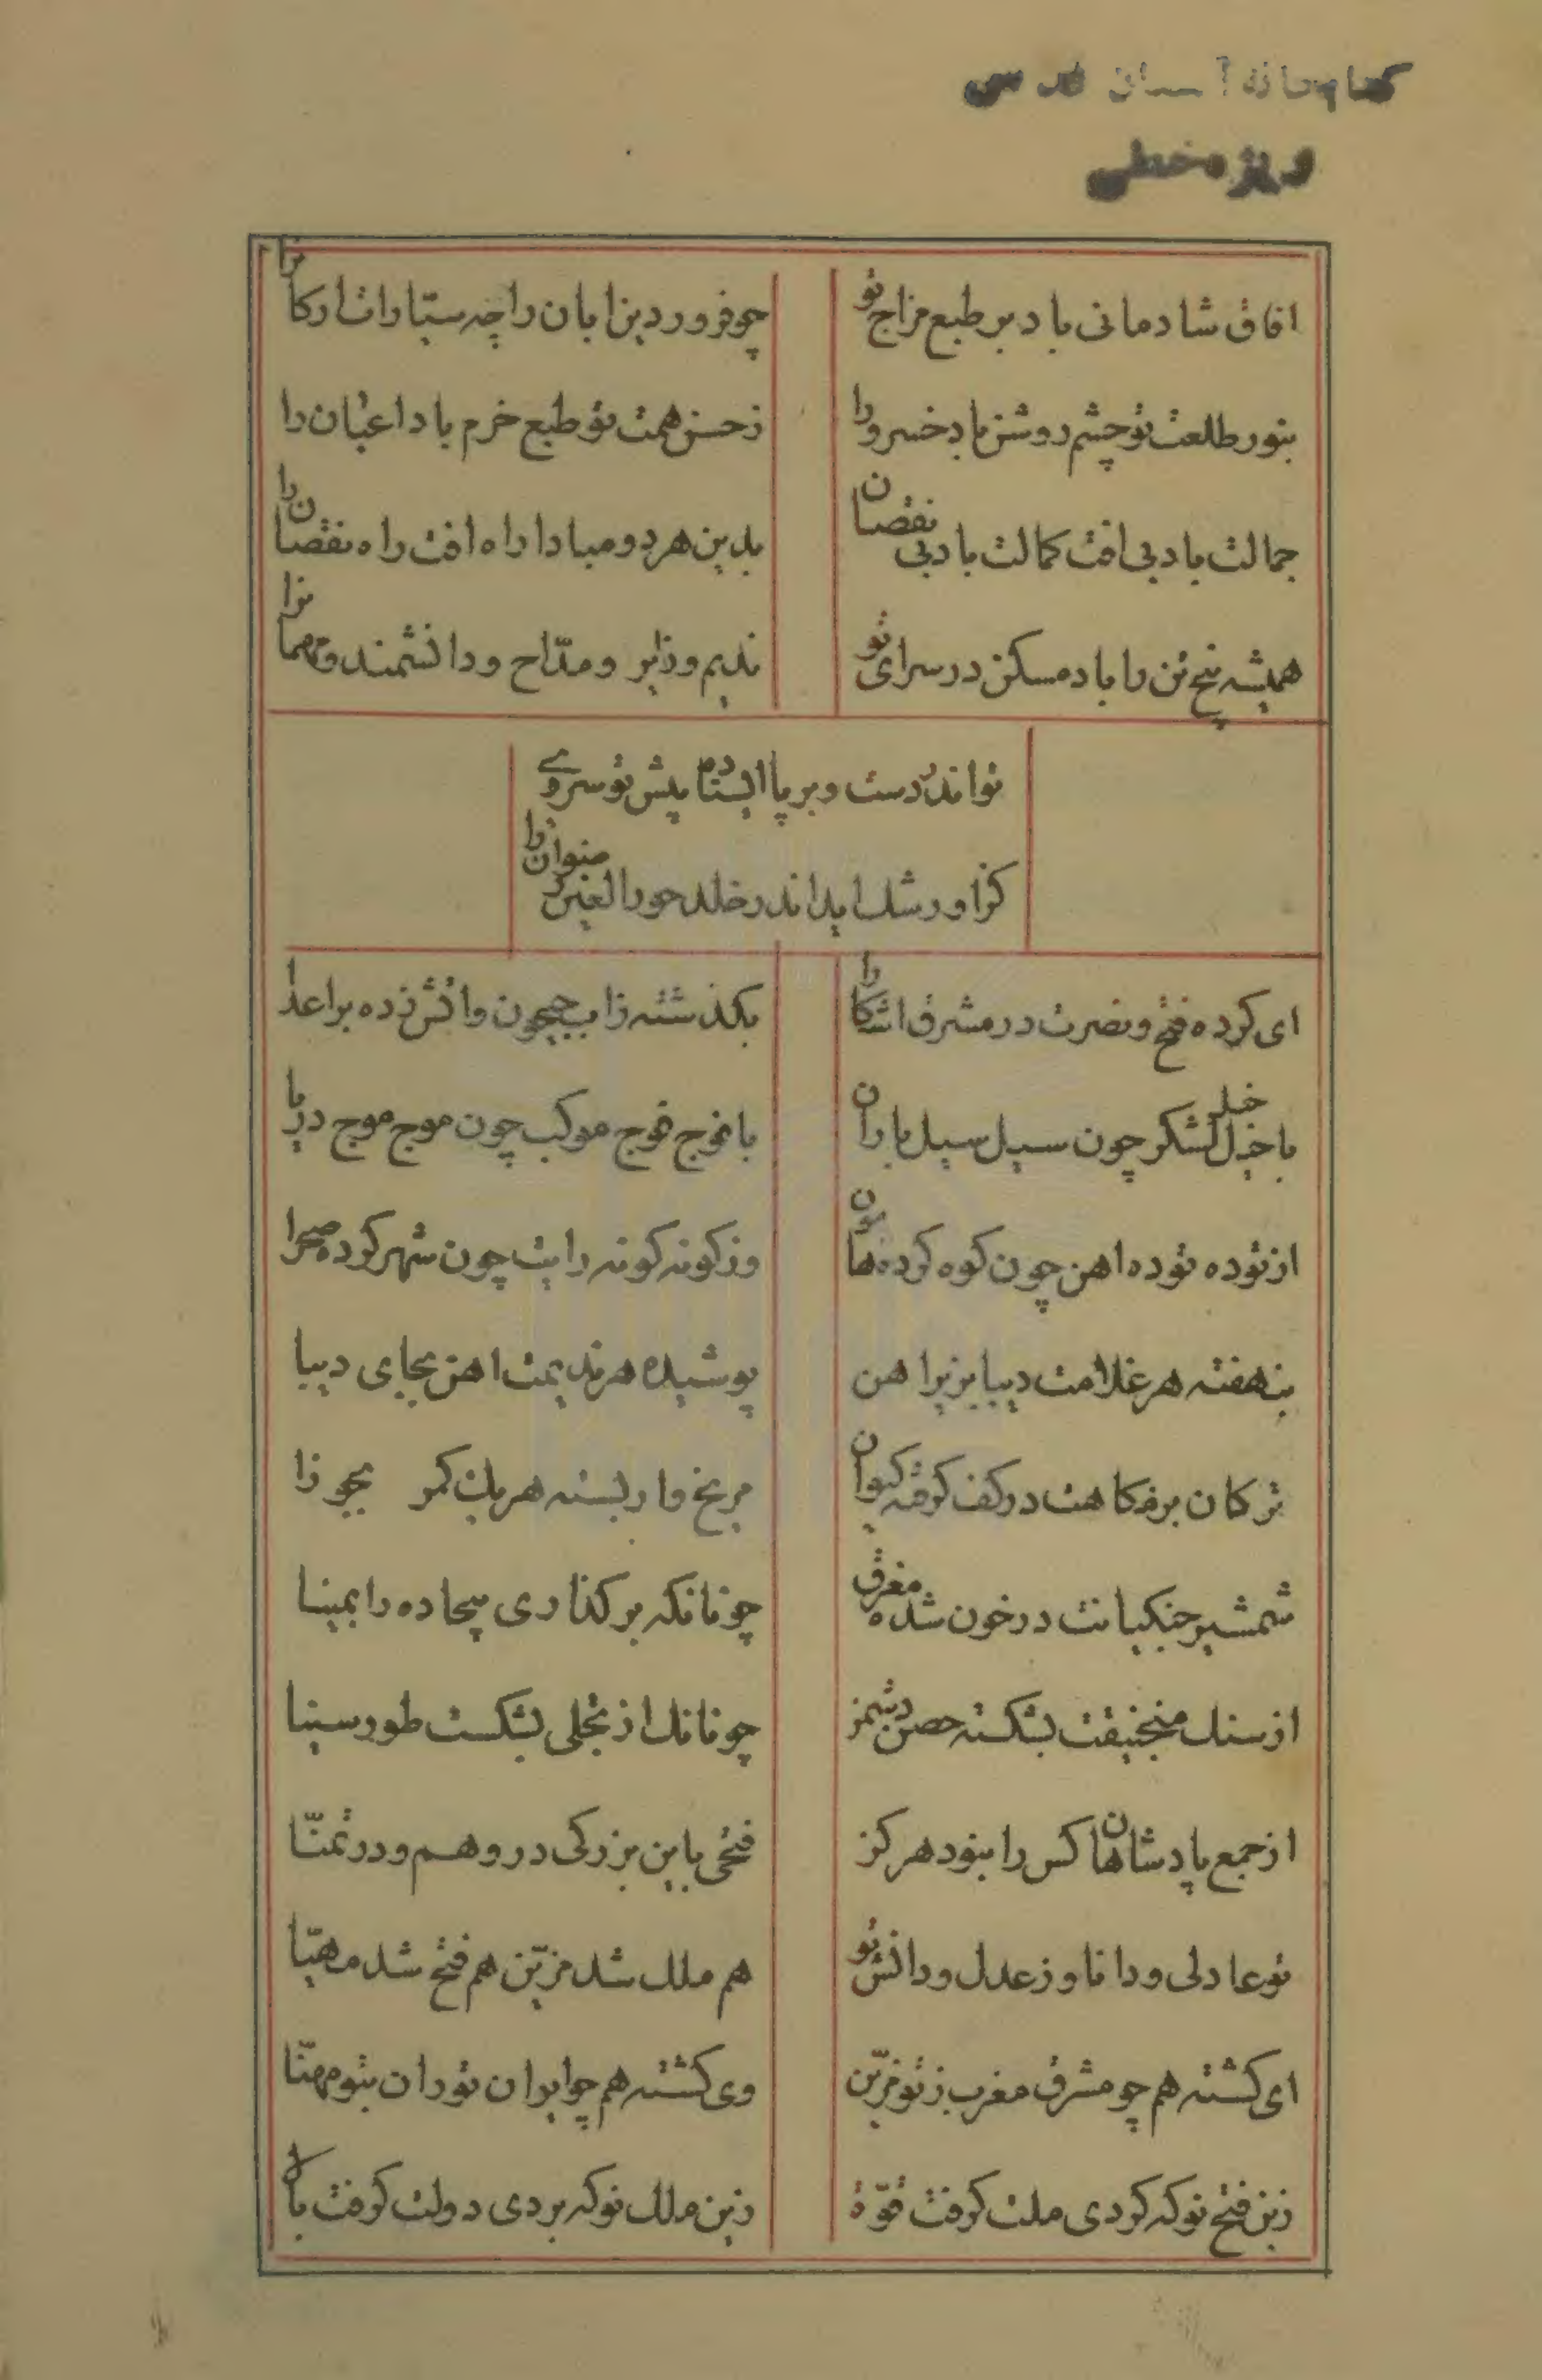 کتابخانه آستان قدس
ویژه خطی
افاق شادمانی باد بر طبع مزاج تو
چو فروردین ابان را چه ستارات ارکانرا
بنور طلعت تو چشم روشن باد خسرو را
ز حسن همت تو طبع خرم باد اعیان را
جمالت باد بی افت کمالت باد بی نقصان
بدین هر دو مبادا راه افت راه نقصان را
همیشه پنج تن را باد مسکن در سرای تو
ندیم و زایر و مدّاح و دانشمند و مهمانرا
تو اندر دست و بر پا ایستاده پیش تو سروی
کزا و رشک اید اندر خلد حورالعین رضوان را
ای کرده فتح و نصرت در مشرق اشکارا
بکذشته ز اب جیحون و اتش زده بر اعدا
با خیل خیل لشکر چون سیل سیل باران
با فوج فوج موکب چون موج موج دریا
از توده توده اهن چون کوه کرده هامون
وز کونه کونه رایت چون شهر کرده صحرا
بنهفته هر غلامت دیبا بزیر اهن
پوشیده هر ندیمت اهن بجای دیبا
ترکان بزمکاهت در کف کرفته کیوان
مریخ وار بسته هر یک کمر بجوزا
شمشیر جنکیانت در خون شده مغرق
چونانکه بر کذاری بیجاده را بمینا
از سنک منجنیقت بشکسته حصن دشمن
چونانک از تجلی بشکست طور سینا
از جمع پادشاهان کس را نبود هرکز
فتحی باین بزرکی در وهم و در تمنّا
تو عادلی و دانا وز عدل و دانش تو
هم ملک شد مزیّن هم فتح شد مهیّا
ای کشته هم چو مشرق مغرب ز تو مزیّن
وی کشته هم چو ایران توران بتو مهنّا
زین فتح نو که کردی ملت کرفت قوّة
زین ملک نو که بردی دولت کرفت بالا